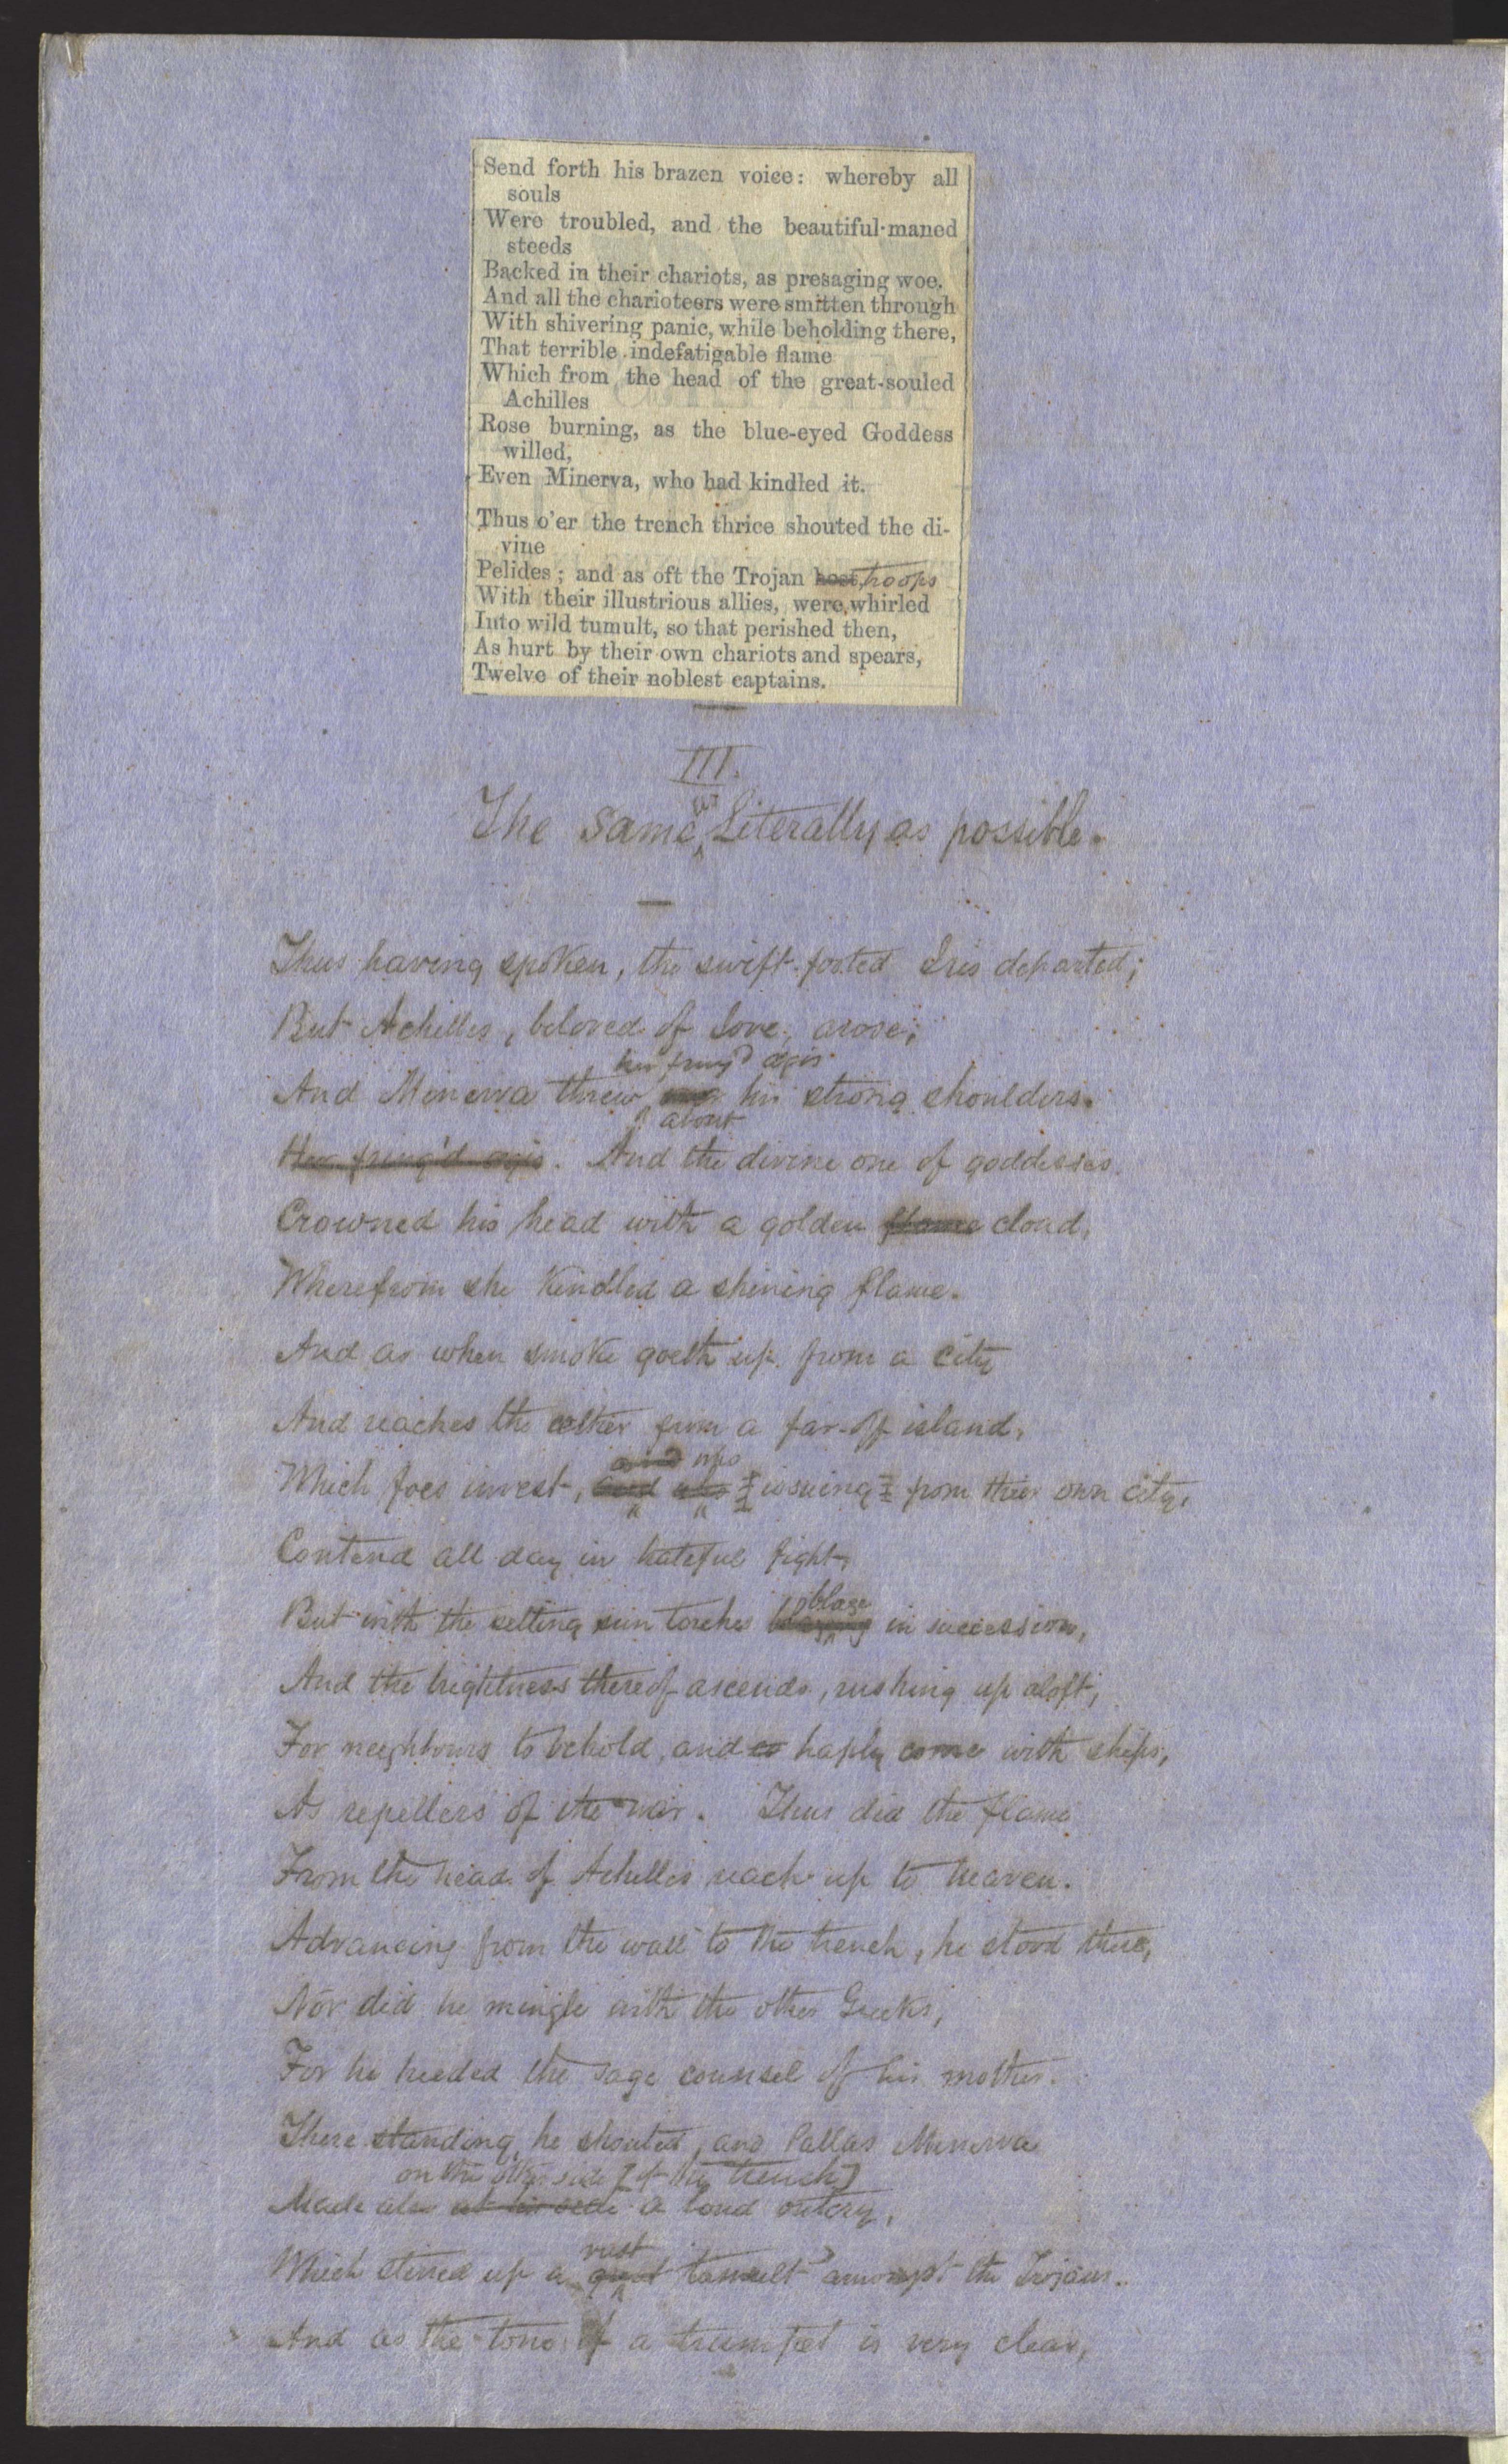 Send forth his brazen voice: whereby all
souls
Were troubled, and the beautiful-maned
steeds
Backed in their chariots, as presaging woe.
And all the charioteers were smitten through
With shivering panic, while beholding there,
That terrible indefatigable flame
Which from the head of the great-souled
Achilles
Rose burning, as the blue-eyed Goddess
willed,
Even Minerva, who had kindled it.
Thus o'er the trench thrice shouted the di-
vine
Pelides; and as oft the Trojan host, troops
With their illustrious allies, were whirled
Into wild tumult, so that perished then,
As hurt by their own chariots and spears,
Twelve of their noblest captains.
III.
as
The Same Literally as possible.
Thus having spoken, the swift-footed Iris departed;
But Achilles, beloved of Jove, arose;
her fring'd ægis
And Minerva threw his strong shoulders.
about
Her fring'd ægis. And the divine one of goddesses
Crowned his head with a golden flame cloud,
Wherefrom she Kindled a shining flame.
And as when smoke goeth up from a city
And reaches the æther from a far-off island,
and who
Which foes invest, and who issuing from their own city,
Contend all day in hateful fight,
blaze
But with the setting sun torches blazing in succession,
And the brightness thereof ascends, rushing up aloft,
For neighbours to behold, and co haply come with ships,
As repellers of the war. Thus did the flame
From the head of Achilles reach up to heaven.
Advancing from the wall to the trench, he stood there,
Nor did he mingle with the other Greeks,
For he heeded the sage counsel of his mother.
There standing, he shouted, and Pallas Minerva
on the other side [of the trench]
Made also at his side a loud outcry,
vast
Which stirred up a great tumult amongst the Trojans.
And as the tone of a trumpet is very clear,